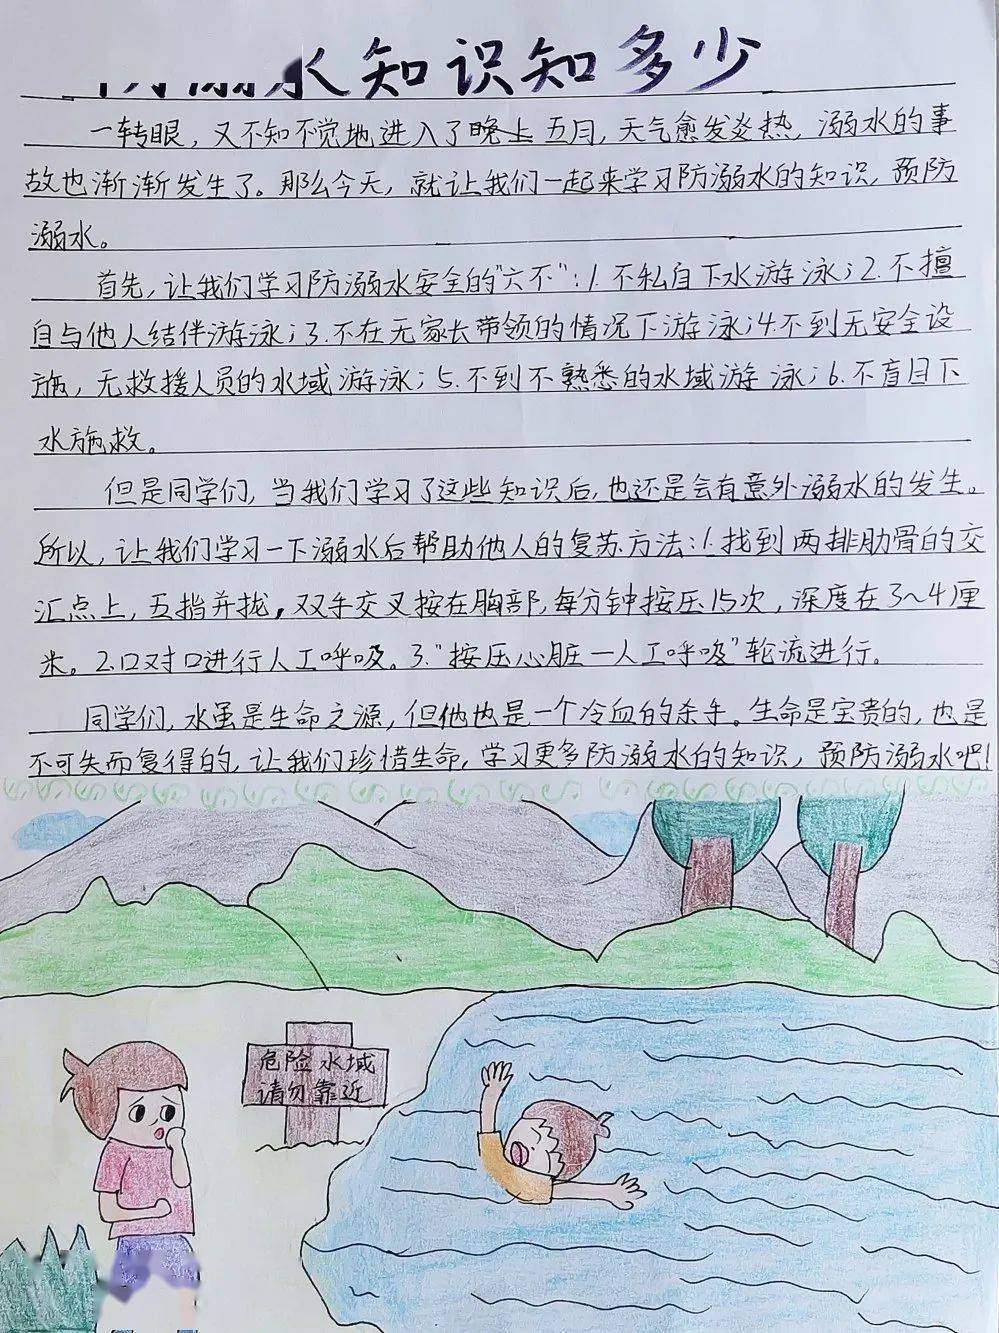 水知识知多少
一转眼，又不知不觉地进入了晚上五月，天气愈发炎热，溺水的事
故也渐渐发生了。那么今天，就让我们一起来学习防溺水的知识，预防
溺水。
首先，让我们学习防溺水安全的"六不"：1.不私自下水游泳；2.不擅
自与他人结伴游泳；3.不在无家长带领的情况下游泳；4.不到无安全设
施，无救援人员的水域游泳；5.不到不熟悉的水域游泳；6.不盲目下
水施救。
但是同学们，当我们学习了这些知识后，也还是会有意外溺水的发生。
所以，让我们学习一下溺水后帮助他人的复苏方法：1.找到两排肋骨的交
汇点上，五指并拢，双手交叉按在胸部，每分钟按压15次，深度在3~4厘
米。2.口对口进行人工呼吸。3."按压心脏一人工呼吸"轮流进行。
同学们，水虽是生命之源，但他也是一个冷血的杀手。生命是宝贵的，也是
不可失而复得的，让我们珍惜生命，学习更多防溺水的知识，预防溺水吧！
危险水域
请勿靠近